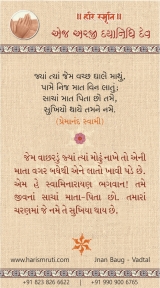 ॥ હરિ સ્મૃતિ ॥
એજ અરજી દયાનિધિ દેવ
જ્યાં ત્યાં જેમ વચ્છ ઘાલે માથું,
પામે નિજ માત વિન લાતું;
સાચાં માત પિતા છો તમે,
સુખિયો થાયે તમને નમે.
(પ્રેમાનંદ સ્વામી)
જેમ વાછરડું જ્યાં ત્યાં મોઢું નાખે તો એની
માતા વગર બધેથી એને લાતો ખાવી પડે છે.
એમ હે સ્વામિનારાયણ ભગવાન! તમે
જીવનાં સાચાં માતા-પિતા છો. તમારાં
ચરણમાં જે નમે તે સુખિયા થાય છે.
www.harismruti.com
Jnan Baug - Vadtal
+91 823 826 6622 | +91 990 900 6765